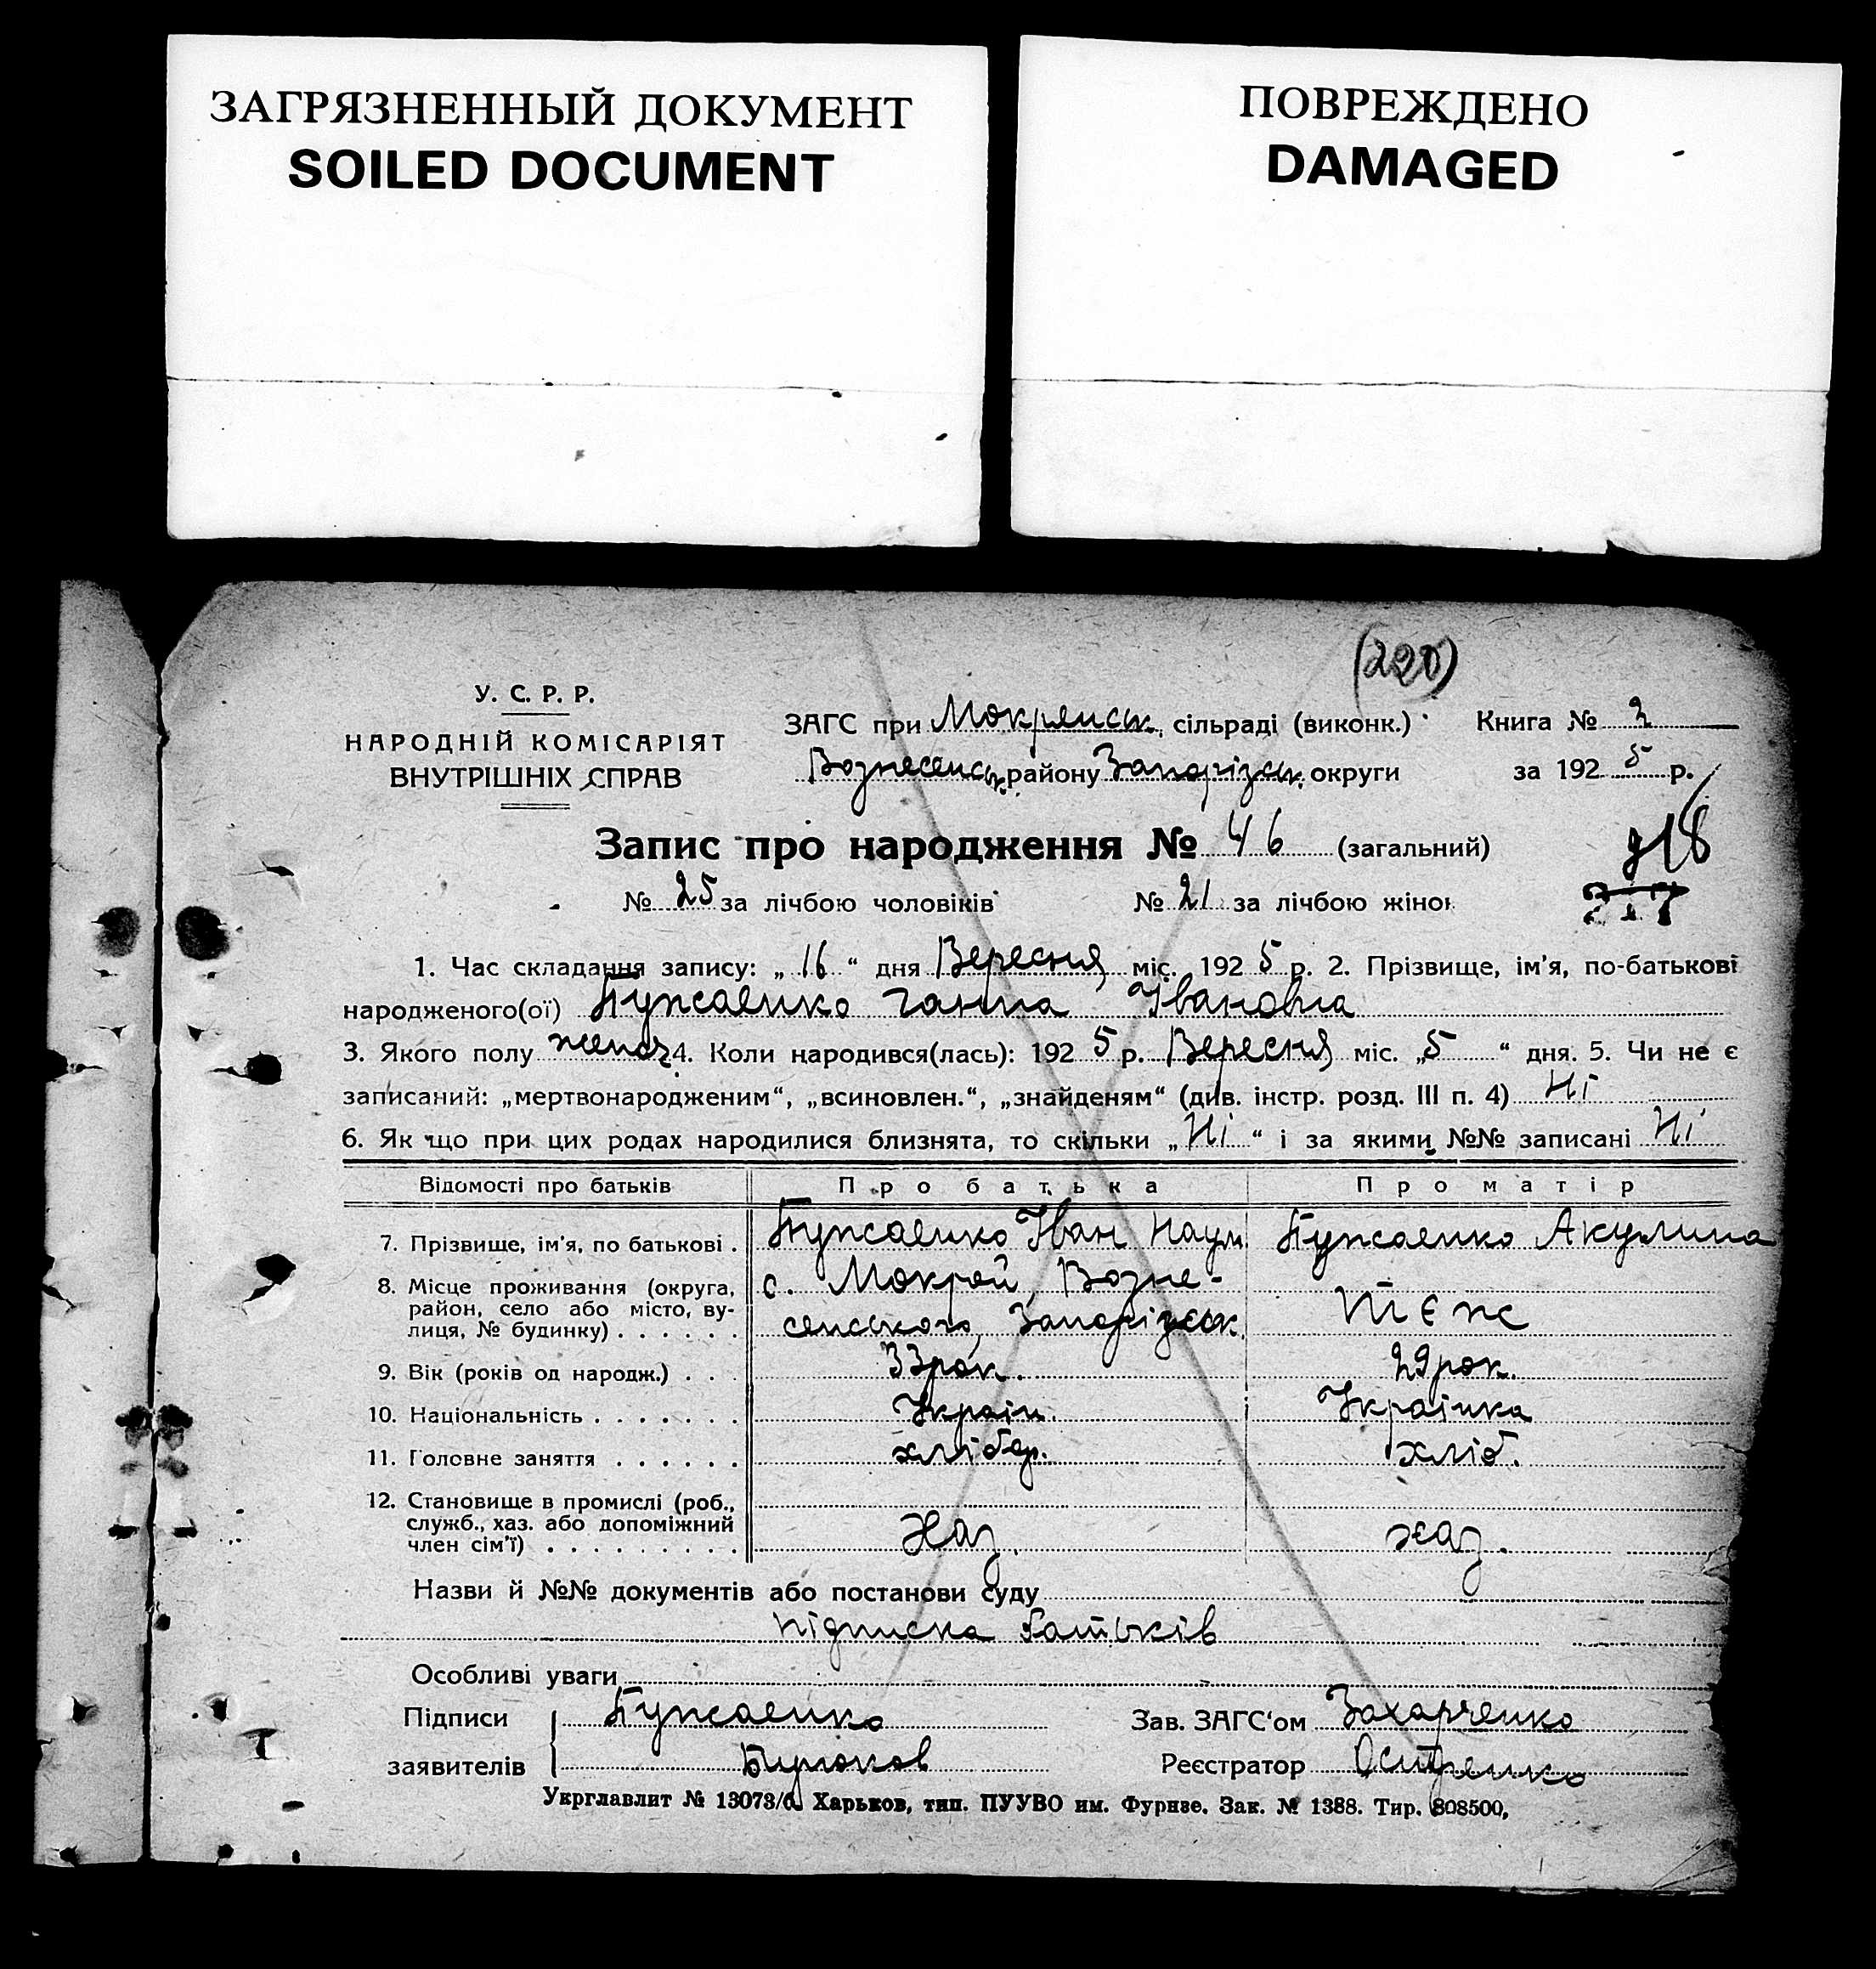 ЗАГРЯЗНЕННЫЙ ДОКУМЕНТ
SOILED DOCUMENT
ПОВРЕЖДЕНО
DAMAGED
(220)
У. С. Р. Р.
НАРОДНІЙ КОМІСАРІЯТ
ВНУТРІШНІХ СПРАВ
ЗАГС при Мокрянськ. сільраді (виконк.) Книга № 2
Вознесенськ. району Запорізськ. округи за 1925 р.
Запис про народження № 46 (загальний)
218
217
№ 25 за лічбою чоловіків № 21 за лічбою жінок
1. Час складання запису: „16“ дня Вересня міс. 1925 р. 2. Прізвище, ім'я, по-батькові
народженого(ої) Бужаенко Ганна Івановна
3. Якого полу женоч. 4. Коли народився(лась): 1925 р. Вересня міс. „5“ дня. 5. Чи не є
записаний: „мертвонародженим“, „всиновлен.“, „знайденям“ (див. інстр. розд. III п. 4) Ні
6. Як що при цих родах народилися близнята, то скільки „Ні“ і за якими №№ записані Ні
Відомості про батьків Про батька Про матір
7. Прізвище, ім'я, по батькові . Бужаенко Іван Наум. Бужаенко Акулина
8. Місце проживання (округа, район, село або місто, вулиця, № будинку) . . . . . . с. Мокрой, Вознесенського, Запорізськ. тєж
9. Вік (років од народж.) . . . 33 рок. 29 рок.
10. Національність . . . . . . . Україн. Українка
11. Головне заняття . . . . . . хлібор. хліб.
12. Становище в промислі (роб., служб., хаз. або допоміжний член сім'ї) . . . . . . . . . Хаз. хаз.
Назви й №№ документів або постанови суду
підписка батьків
Особливі уваги
Підписи Бужаенко Зав. ЗАГС'ом Захарченко
заявителів Бирюков Реєстратор
Укрглавлит № 13073/6. Харьков, тип. ПУУВО им. Фрунзе. Зак. № 1388. Тир. 808500,